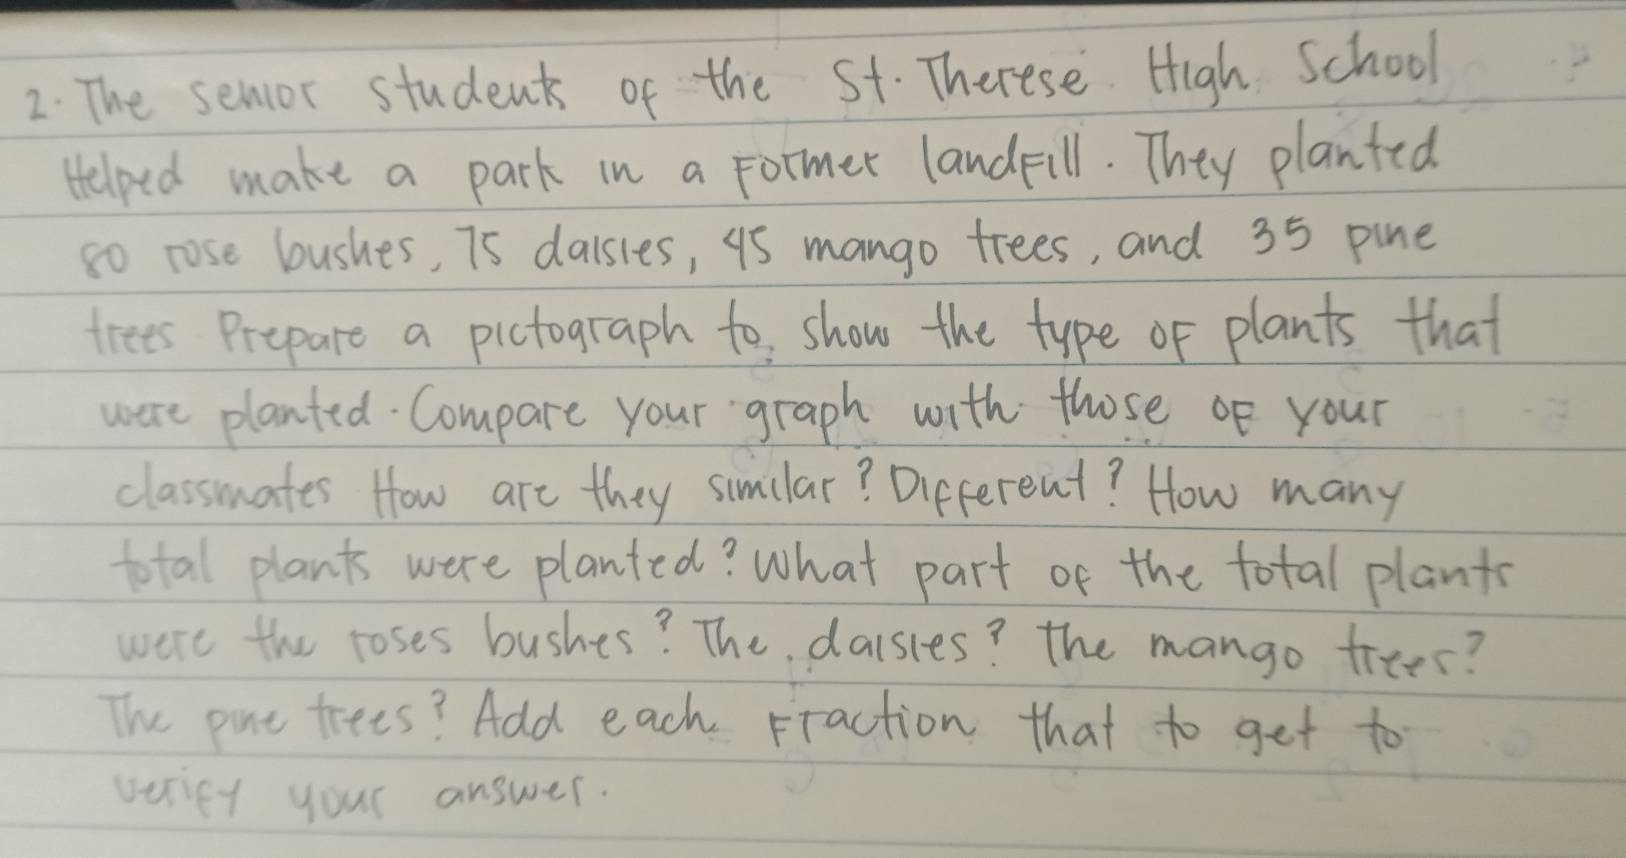 2. The senior students of the St. Therese High School
Helped make a park in a Former landFill. They planted
80 rose bushes, 75 daisies, 45 mango trees, and 35 pine
trees Prepare a pictograph to show the type of plants that
were planted. Compare your graph with those of your
classmates How are they similar? Different? How many
total plants were planted? What part of the total plants
were the roses bushes? The daisies? The mango trees?
The pine trees? Add each Fraction that to get to
verify your answer.